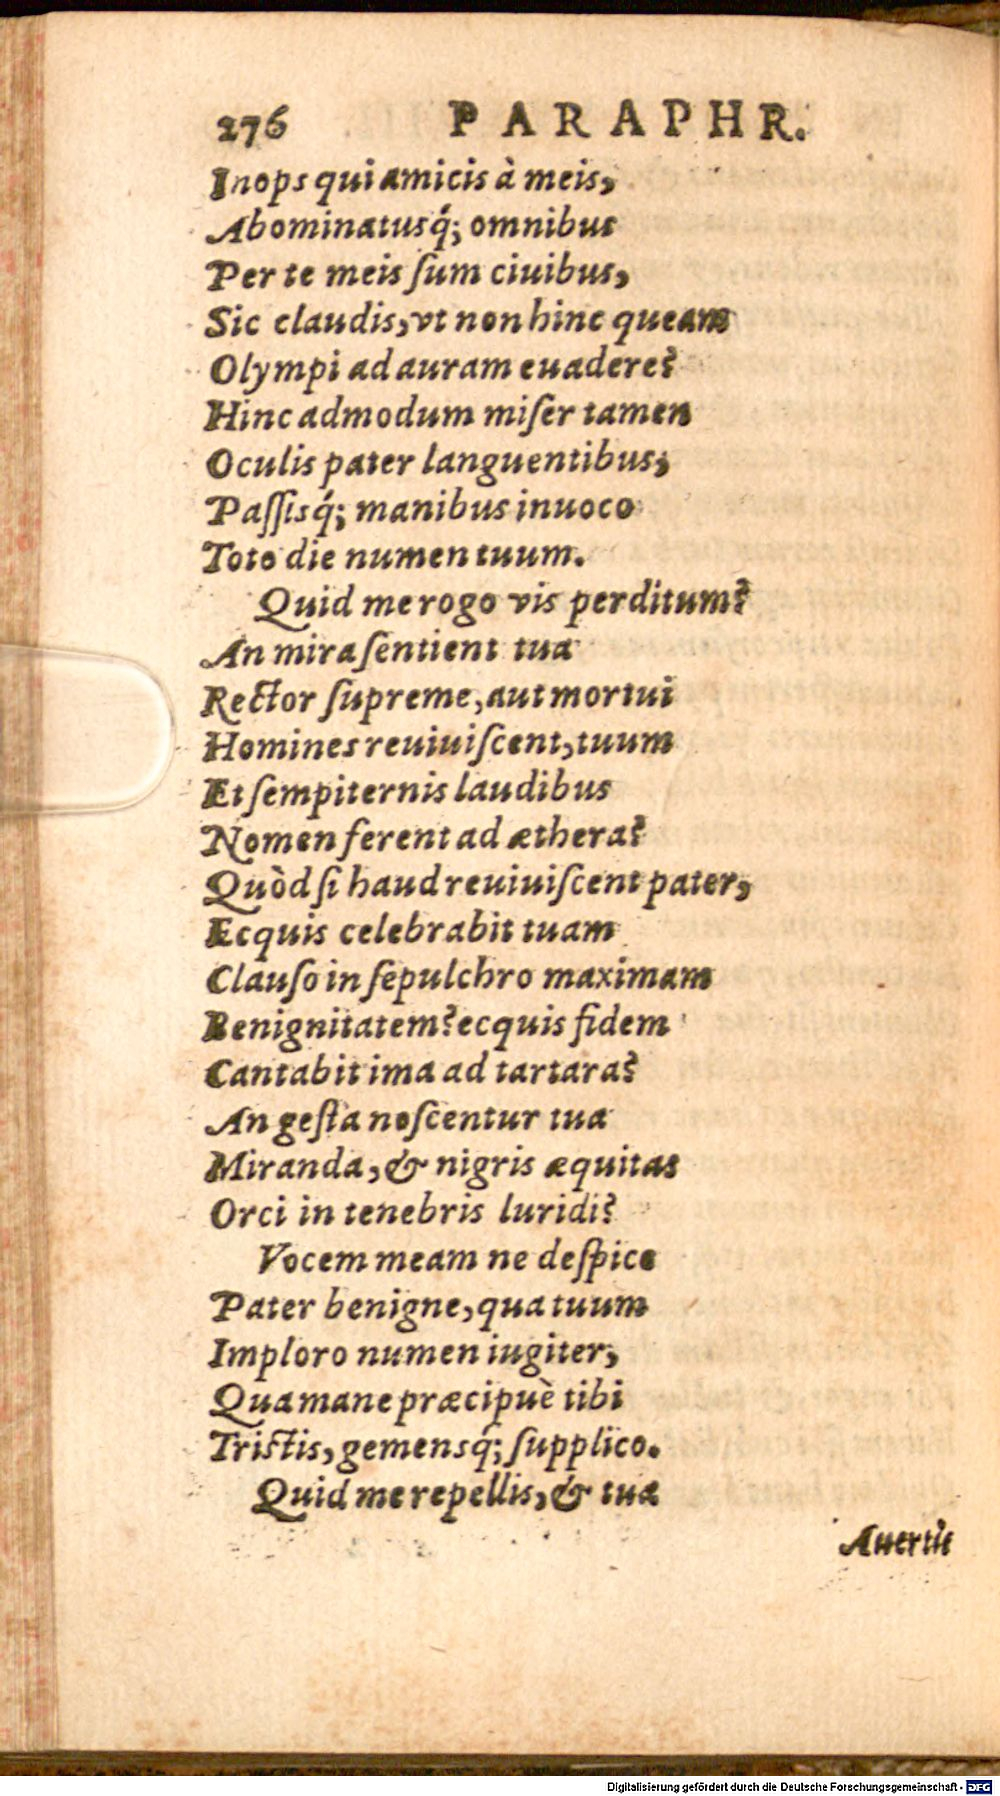 276 PARAPHR.
Inops qui amicis à meis,
Abominatusq́; omnibus
Per te meis ſum ciuibus,
Sic claudis, vt non hinc queam
Olympi ad auram euadere?
Hinc admodum miſer tamen
Oculis pater languentibus,
Paſſisq́; manibus inuoco
Toto die numen tuum.
Quid me rogo vis perditum?
An mira ſentient tua
Rector ſupreme, aut mortui
Homines reuiuiſcent, tuum
Et ſempiternis laudibus
Nomen ferent ad æthera?
Quòd ſi haud reuiuiſcent pater,
Ecquis celebrabit tuam
Clauſo in ſepulchro maximam
Benignitatem? ecquis fidem
Cantabit ima ad tartara?
An geſta noſcentur tua
Miranda, & nigris æquitas
Orci in tenebris luridi?
Vocem meam ne deſpice
Pater benigne, qua tuum
Imploro numen iugiter,
Qua mane præcipuè tibi
Triſtis, gemensq́; ſupplico.
Quid me repellis, & tua
Auertis
Digitalisierung gefördert durch die Deutsche Forschungsgemeinschaft - DFG